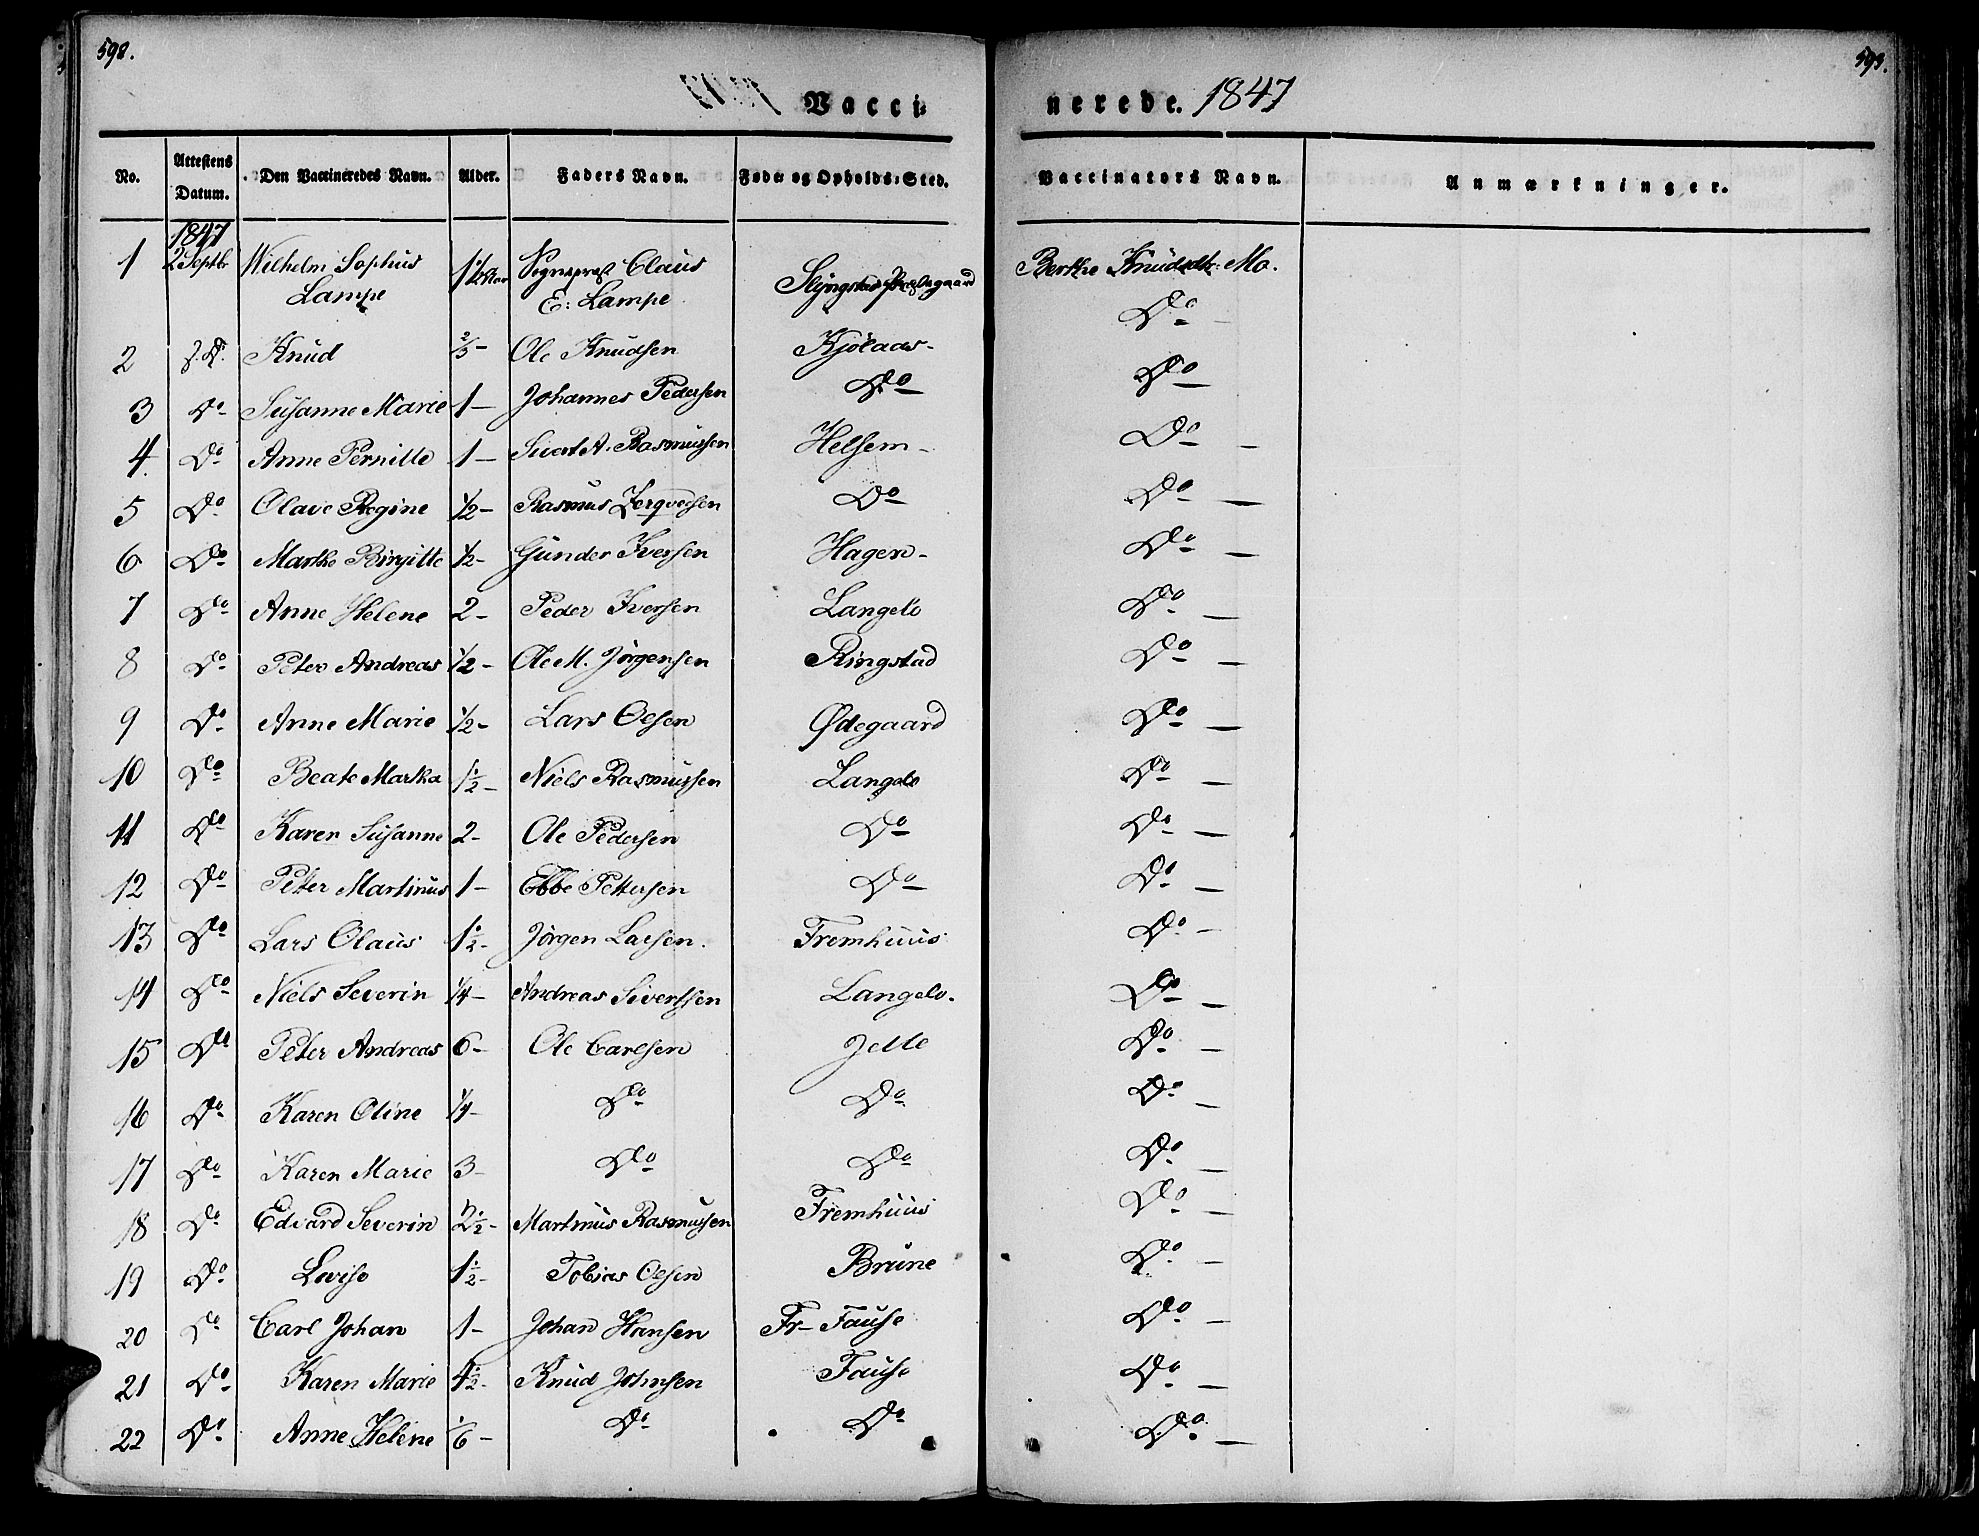 592.
593.
Vacci-
nerede. 1847
No. Attestens Datum. Den Vaccineredes Navn. Alder. Faders Navn. Føde- og Opholds-Sted. Vaccinators Navn. Anmærkninger.
1847
1 2 Septbr Wilhelm Sophus Lampe Sognepræst Claus E: Lampe Berthe Knudsdtr: Mo.
2 Knud 2/3 - Ole Knudsen Kjølaas - Do -
3 Do Susanne Marie 1 - Johannes Pedersen Do - Do -
4 Do Anne Pernille 1 - Sivert A. Rasmussen Helsem - Do -
5 Do Olave Regine 1/2 - Rasmus Do Do -
6 Do Marthe Birgitte 1/2 - Gunder Iversen Hagen - Do -
7 Do Anne Helene 2 - Peder Iversen Langelo Do -
8 Do Peter Andreas 1/2 - Ole M. Jørgensen Ringstad Do -
9 Do Anne Marie 1/2 - Lars Olsen Ødegaard Do -
10 Do Beate Marka 1 1/2 - Niels Rasmussen Langelo Do -
11 Do Karen Susanne 2 - Ole Pedersen Do Do -
12 Do Peter Martinus 1 - Ebbe Pettersen Do Do -
13 Do Lars Olaus 1 1/2 - Jørgen Larsen. Fremhuus Do -
14 Do Niels Severin 1/4 - Andreas Sivertsen Langelo. Do -
15 Do Peter Andreas 6 - Ole Carlsen Jelle Do -
16 Do Karen Oline 1/4 - Do Do Do -
17 Do Karen Marie 3 - Do Do Do -
18 Do Edvard Severin 2 1/2 - Martinus Rasmussen Fremhuus Do -
19 Do Lovise 1 1/2 - Tobias Olsen Brune Do -
20 Do Carl Johan 1 - Johan Hansen Fr- Fause Do -
21 Do Karen Marie 4 1/2 - Knud Johnsen Fause Do -
22 Do Anne Helene 1/6 - Do Do Do -